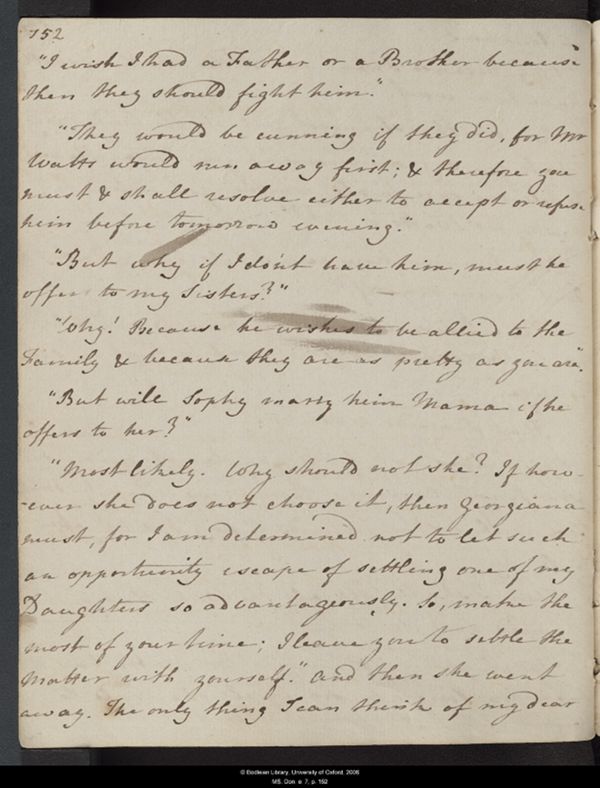 152
"I wish I had a Father or a Brother because
then they should fight him."
"They would be cunning if they did, for Mr
Watts would run away first; & therefore you
must & shall resolve either to accept or refuse
him before tomorrow evening."
"But why if I do'nt have him, must he
offer to my Sisters?"
"Why! Because he wishes to be allied to the
Family & because they are as pretty as you are".
"But will Sophy marry him Mama if he
offers to her?"
"Most likely. Why should not she? If how-
-ever she does not choose it, then Georgiana
must, for I am determined not to let such
an opportunity escape of settling one of my
Daughters so advantageously. So, make the
most of your time; I leave you to settle the
Matter with yourself." And then she went
away. The only thing I can think of my dear
© Bodleian Library, University of Oxford, 2006
MS. Don. e. 7, p. 152